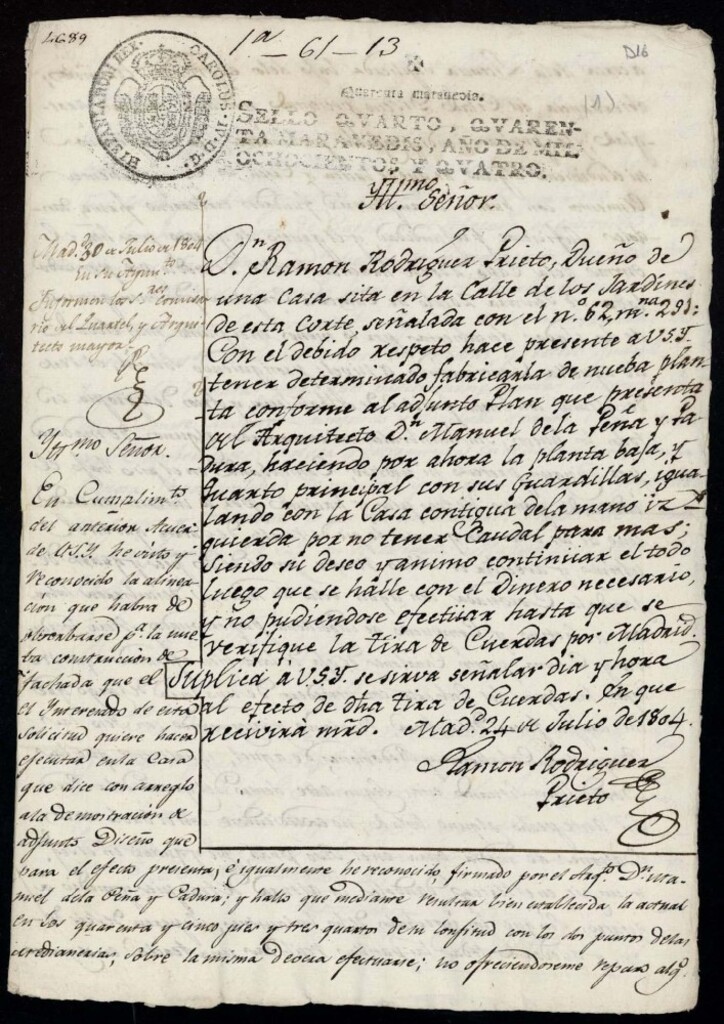 4689
1ª - 61 - 13
D16
(1)
HISPANIARUM REX. CAROLUS IV. D. G.
Quarenta maravedis.
SELLO QVARTO, QVAREN-
TA MARAVEDIS, AÑO DE MIL
OCHOCIENTOS Y QVATRO.
Yll.mo Señor.
D.n Ramon Rodriguez Prieto, Dueño de
una Casa sita en la Calle de los Jardines
de esta Corte, señalada con el n.º 62, m.na 291:
Con el debido respeto hace presente a V.S.Y.
tener determinado fabricarla de nueba plan-
ta conforme al adjunto Plan que presenta
del Arquitecto D.n Manuel de la Peña y Pa-
dura, haciendo por ahora la planta baja, y
quarto principal con sus Guardillas, igua-
lando con la Casa contigua dela mano iz-
quierda por no tener Caudal para mas;
siendo su deseo y animo continuar el todo
luego que se halle con el Dinero necesario,
y no pudiendose efectuar hasta que se
verifique la tira de Cuerdas por Madrid.
Suplica à V.S.Y. se sirva señalar dia y hora
al efecto de dha tira de Cuerdas. En que
recivirà mrd. Mad.d 24 de Julio de 1804.
Ramon Rodriguez
Prieto
Mad.d 30 de Julio de 1804
En su Ayunt.to
Informen los S.res Comisa-
rio del Quartel, y Arqui-
tecto mayor.
Yltmo Señor.
En Cumplim.to
del anterior Acuer-
do de V.S.Y. he visto y
reconocido la alinea-
cion que habra de
observarse p.a la nue-
ba construccion de
fachada que el
el Interesado de esta
solicitud quiere hacer
ejecutar en la Casa
que dice con arreglo
ala demostracion de
adjunto Diseño que
para el efecto presenta, è igualmente he reconocido, firmado por el Arq.to D.n Ma-
nuel dela Peña y Padura; y hallo que mediante resultar bien establecida la actual
en los quarenta y cinco pies y tres quartos de su longitud con los dos puntos de las
medianerias, sobre la misma devera efectuarse; no ofreciendoseme reparo alg.º